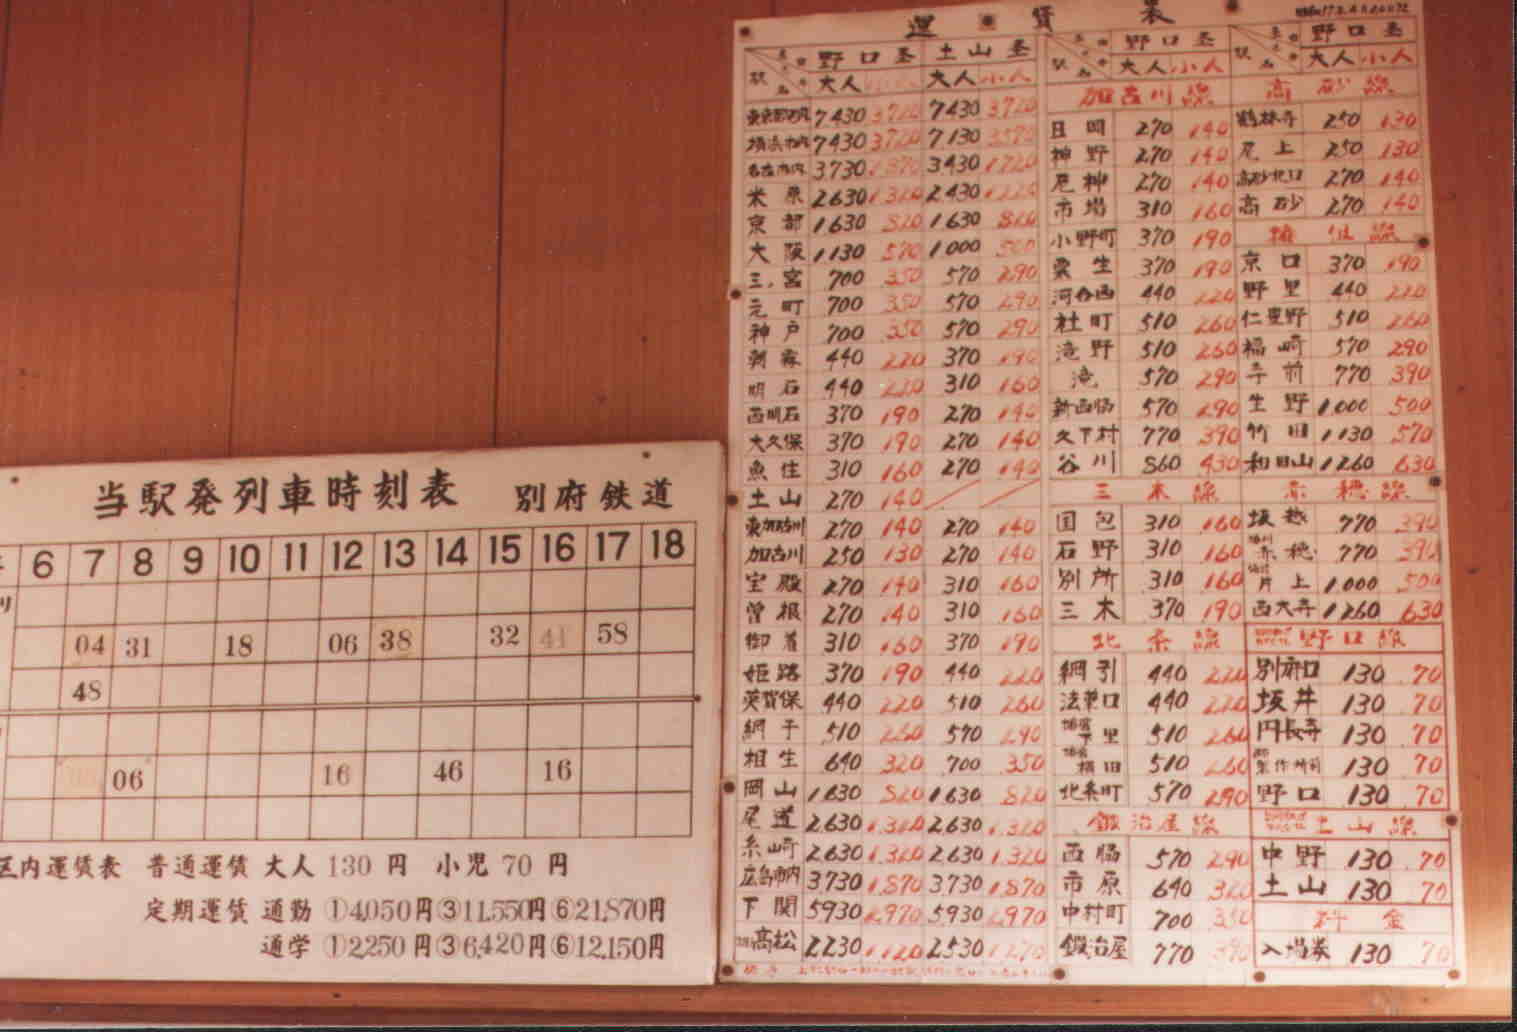 当駅発列車時刻表 別府鉄道
6 7 8 9 10 11 12 13 14 15 16 17 18
04 31 18 06 38 32 41 58
48
06 16 46 16
区内運賃表 普通運賃 大人 130 円 小児 70 円
定期運賃 通勤 ①4,050円 ③11,550円 ⑥21,870円
通学 ①2,250円 ③6,420円 ⑥12,150円
運賃表
野口ゟ 土山ゟ
駅名 大人 小人 大人 小人
東京都区内 7430 3720 7430 3720
横浜市内 7430 3720 7130 3570
名古屋市内 3730 1870 3430 1720
米原 2630 1320 2430 1220
京都 1630 820 1630 820
大阪 1130 570 1000 500
三ノ宮 700 350 570 290
元町 700 350 570 290
神戸 700 350 570 290
朝霧 440 220 370 190
明石 440 220 310 160
西明石 370 190 270 140
大久保 370 190 270 140
魚住 310 160 270 140
土山 270 140
東加古川 270 140 270 140
加古川 250 130 270 140
宝殿 270 140 310 160
曽根 270 140 310 160
御着 310 160 370 190
姫路 370 190 440 220
英賀保 440 220 510 260
網干 510 260 570 290
相生 640 320 700 350
岡山 1630 820 1630 820
尾道 2630 1320 2630 1320
糸崎 2630 1320 2630 1320
広島市内 3730 1870 3730 1870
下関 5930 2970 5930 2970
高松 2230 1120 2530 1270
野口ゟ
駅名 大人 小人
加古川線
日岡 270 140
神野 270 140
厄神 270 140
市場 310 160
小野町 370 190
粟生 370 190
河合西 440 220
社町 510 260
滝野 510 260
滝 570 290
新西脇 570 290
久下村 770 390
谷川 860 430
三木線
国包 310 160
石野 310 160
別所 310 160
三木 370 190
北条線
網引 440 220
法華口 440 220
播磨下里 510 260
播磨横田 510 260
北条町 570 290
鍛冶屋線
西脇 570 290
市原 640 320
中村町 700 350
鍛冶屋 770 390
野口ゟ
駅名 大人 小人
高砂線
鶴林寺 250 130
尾上 250 130
高砂北口 270 140
高砂 270 140
播但線
京口 370 190
野里 440 220
仁豊野 510 260
福崎 570 290
寺前 770 390
生野 1,000 500
竹田 1130 570
和田山 1260 630
赤穂線
坂越 770 390
播州赤穂 770 390
備前片上 1,000 500
西大寺 1260 630
野口線
別府口 130 70
坂井 130 70
円長寺 130 70
製作所前 130 70
野口 130 70
土山線
中野 130 70
土山 130 70
料金
入場券 130 70